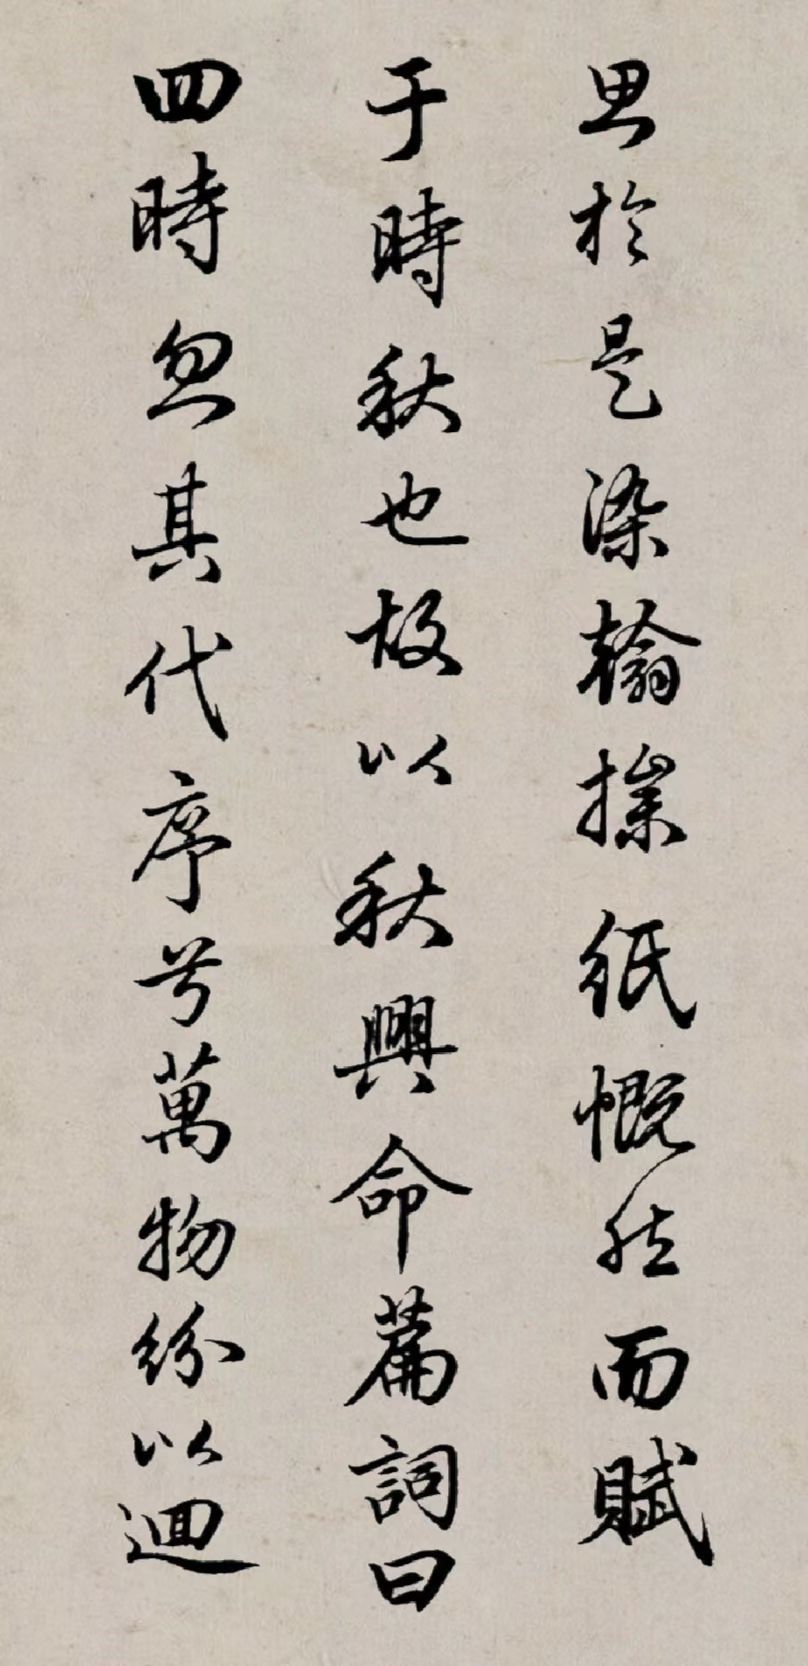 思於是染翰操紙慨然而賦
于時秋也故以秋興命篇詞曰
四時忽其代序兮萬物紛以迴